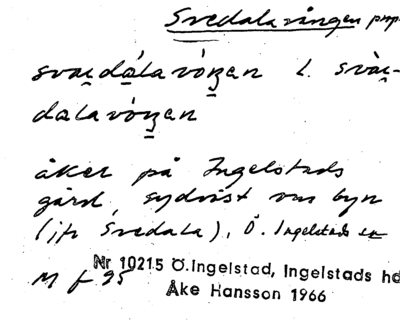 Svedalavången prop
svaɩdálavóŋen l. svàɩ-
dalavóŋen
åker på Ingelstads
gård, sydväst om byn
(jfr Svedala), Ö. Ingelstads sn
M f. 95
Nr 10215 Ö.Ingelstad, Ingelstads hd
Åke Hansson 1966